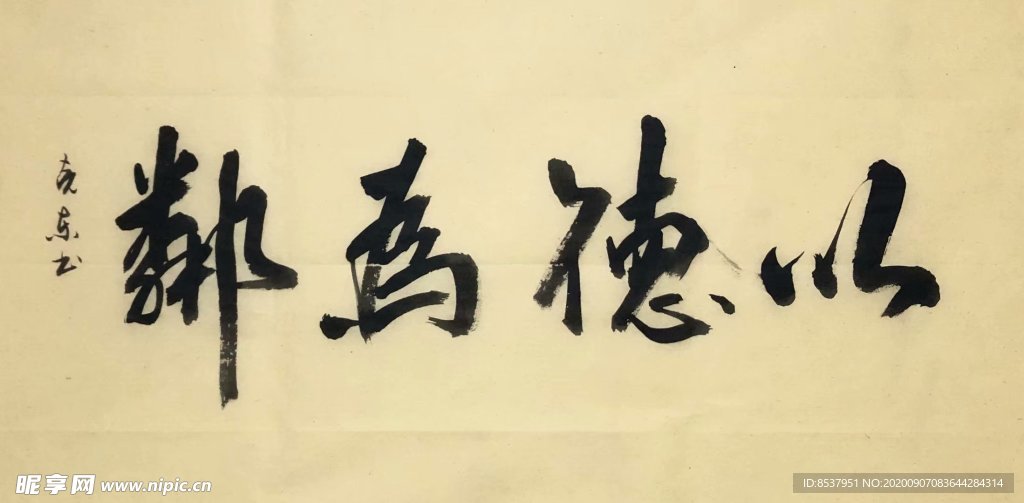 以德為鄰
克東书
昵享网 www.nipic.cn
ID:8537951 NO:20200907083644284314